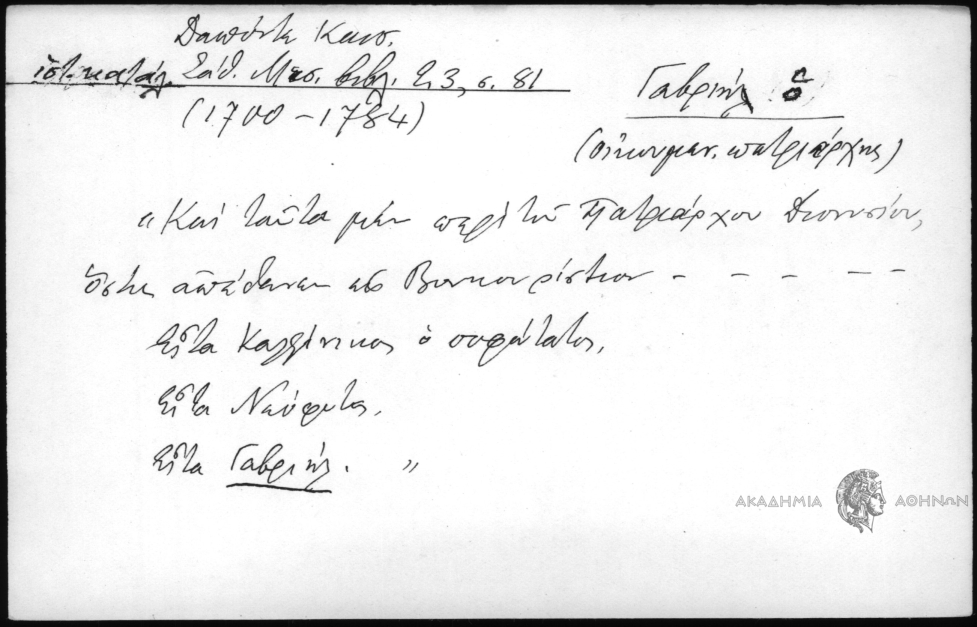 Δαπόντε Κωνσ.
ἱστ. κατάλ. Σάθ. Μεσ. βιβλ. τ. 3, σ. 81
(1700 – 1784)
Γαβριὴλ ὁ
(οἰκουμεν. πατριάρχης)
"Καὶ ταῦτα μὲν περὶ τοῦ Πατριάρχου Διονυσίου,
ὅστις ἀπέθανεν εἰς Βουκουρέστιον - - - - -
Εἶτα Καλλίνικος ὁ σοφώτατος,
Εἶτα Νεόφυτος,
Εἶτα Γαβριήλ. "
ΑΚΑΔΗΜΙΑ ΑΘΗΝΩΝ